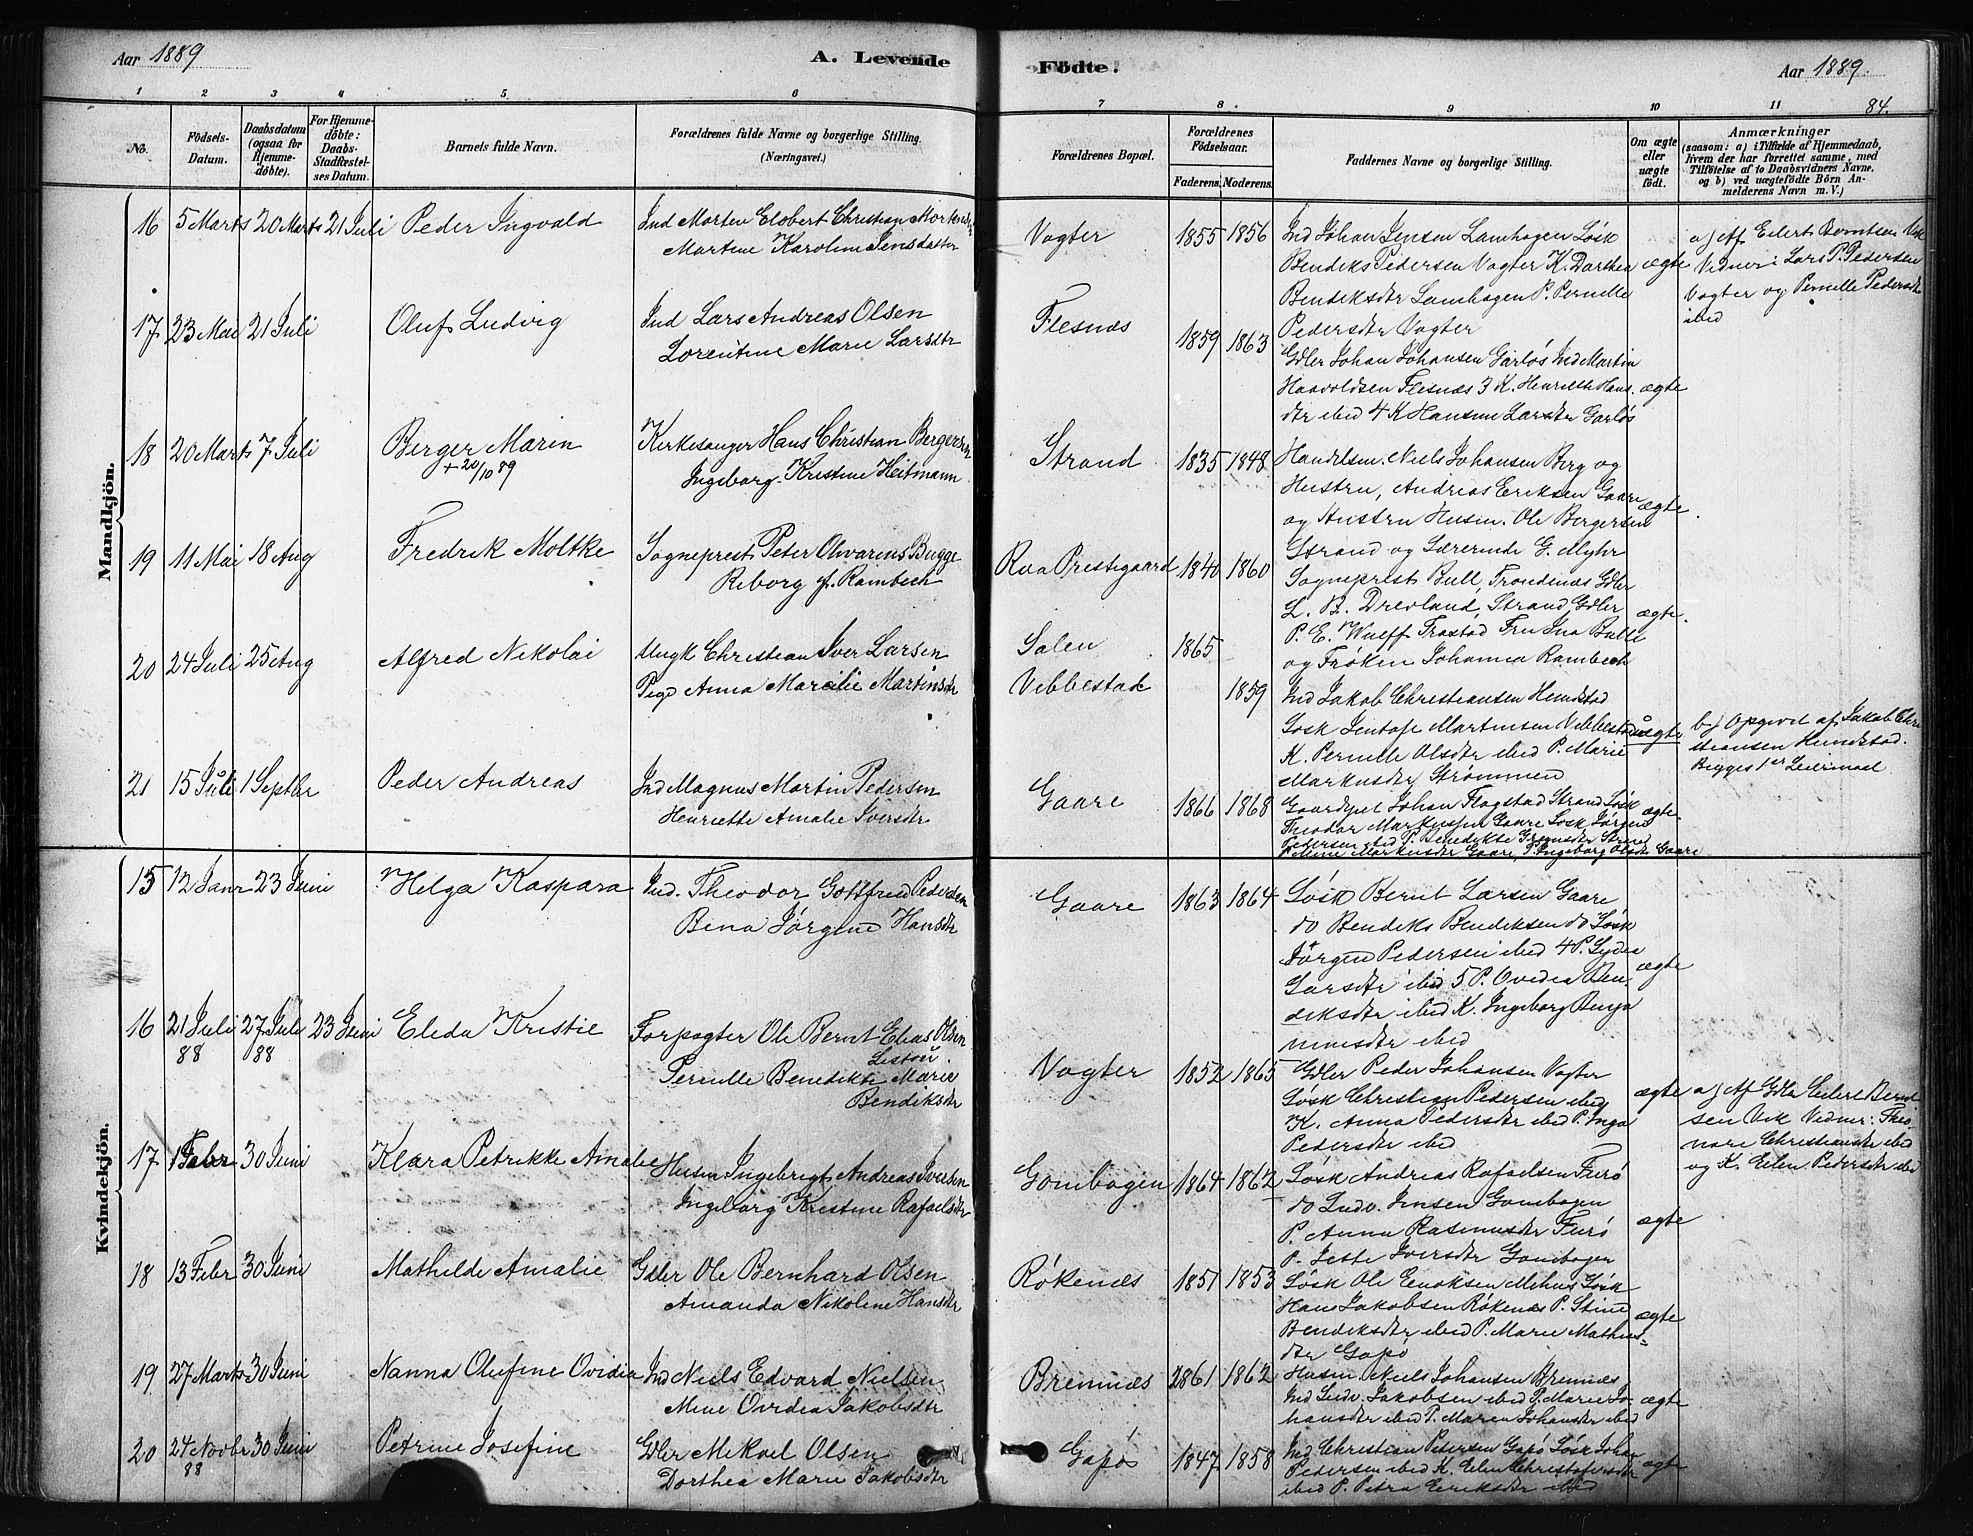 Aar 1889
A. Levende
Födte.
Aar 1889.
84.
1 2 3 4 5 6 7 8 9 10 11
No.
Födsels-
Datum.
Daabsdatum
(ogsaa for
Hjemme-
döbte).
For Hjemme-
döbte:
Daabs-
Stadfæstel-
ses Datum.
Barnets fulde Navn.
Forældrenes fulde Navne og borgerlige Stilling
(Næringsvei.)
Forældrenes Bopæl.
Forældrenes
Födselsaar.
Faderens. Moderens.
Faddernes Navne og borgerlige Stilling.
Om ægte
eller
uægte
født.
Anmærkninger
(saasom: a) i Tilfælde af Hjemmedaab,
hvem der har forrettet samme, med
Tilföielse af to Daabsvidners Navne,
og b) ved uægtefödte Börn An-
melderens Navn m. V.)
Mandkjön.
16 5 Marts 20 Marts 21 Juli Peder Ingvald
Ind Morten Elobert Christian
Martine Karoline Jensdatter
Vagter 1855 1856
Ind Johan Jensen Lamhagen Løsk
Bendiks Pedersen Vagter K. Dorthea
Bendiksdtr Lamhagen P. Pernille
Pedersdtr Vagter
ægte
a) Af Eilert Berntsen Vik
Vidner: Lars P. Pedersen
Vagter og Pernille Pedersdtr
ibid
17 23 Mai 21 Juli Oluf Ludvig
Ind Lars Andreas Olsen
Lorentine Marie Larsdtr
Flesnæs 1859 1863
Gdler Johan Johansen Garløs Ind Martin
Haavoldsen Flesnæs 3 K. Henriette Hans-
dtr ibid 4 K Hansine Larsdtr Garløs
ægte
18 20 Marts 7 Juli Berger Marin
+ 20/10 89
Kirkesanger Hans Christian Bergersen
Ingeborg Kristine Heitmann
Strand 1835 1848
Handelsm. Niels Johansen Berg og
Hustru, Andreas Eriksen Gaare
og Hustru Husm. Ole Bergersen
Strand og Lærerinde G. Myhr
ægte.
19 11 Mai 18 Aug Fredrik Moltke
Sogneprest Peter Olivarius Bugge
Riborg f. Rambech
Præstegaard 1840 1860
Sogneprest Bull, Trondenæs Gdler
L. B. Drevland, Strand, Gdler
P. E. Wulff Trastad Fru Ina Bulle
og Frøken Johanna Rambech
ægte.
20 24 Juli 25 Aug Alfred Nikolai
Ungk Christian Iver Larsen
Pige Anna Marcilie Martinsdtr
Salen 1865
Vebbestad 1859
Ind Jakob Christiansen Hundstad
Løsk Martinsen Vebbestad
K. Pernille Olsdtr ibid P. Marie
Markusdtr Strømmen
uægte
b) Opgivet af Jakob Chri
stiansen Hundstad.
Begges 1ste Leiermaal
21 15 Juli 1 Septbr Peder Andreas
Ind Magnus Martin Pedersen
Henriette Amalie Iversdtr
Gaare 1866 1868
Johan Flagstad Strand Løsk
Theodor Markussen Gaare Løsk Jørgen
Pedersen ibid P. Benedikte
Markusdtr Gaare P. Ingeborg Olsdtr Gaare
ægte
Kvindekjön.
15 12 Janr 23 Juni Helga Kaspara
Ind. Theodor Gottfred Pedersen
Bena Jørgine Hansdtr
Gaare 1863 1864
Løsk Bernt Larsen Gaare
do Bendiks Bendiksen do Løsk
Jørgen Pedersen ibid 4 P. Lydia
Larsdtr ibid 5 P. Ovidia Ben-
diksdtr ibid K. Ingeborg Benja
minsdtr ibid
ægte
16 21 Juli 27 Juli 23 Juni Elida Kristie
88 88
Forpagter Ole Bernt Elias Olsen
Pernille Benedikte Marie
Bendiksdtr
Vagter 1852 1865
Gdler Peder Johansen Vagter
Løsk Christian Pedersen ibid
K. Anna Pedersdtr ibid P. Inga
Pedersdtr ibid
ægte
a) Af Gdlr Eilert Bernt
sen Vik Vidner: Theo
nore Christiansdtr ibid
og K. Elen Pedersdtr ibid
17 1 Febr 30 Juni Klara Petrikke Amalie
Husm Ingebrigt Andreas Iversen
Ingeborg Kristine Rafaelsdtr
Gombogen 1864 1862
Løsk Andreas Rafaelsen Furø
do Ludv. Jensen Gombogen
P. Anna Rasmusdtr Furø
P. Jette Iversdtr Gombogen
ægte
18 13 Febr 30 Juni Mathilde Amalie
Gdler Ole Bernhard Olsen
Amanda Nikoline Hansdtr
Røkenæs 1851 1853
Løsk Ole Enoksen Mehus Løsk
Hans Jakobsen Røkenæs P. Stine
Bendiksdtr ibid P. Marie Mathis-
dtr Gapø
ægte
19 27 Marts 30 Juni Nanna Olufine Ovidia
Ind Niels Edvard Nielsen
Mine Ovidia Jakobsdtr
Bremnæs 1861 1862
Husm Niels Johansen Bremnæs
Ind Ludv. Jakobsen ibid P. Marie Jo-
hansdtr ibid P. Maren Johansdtr ibid
ægte
20 24 Novbr 30 Juni Petrine Josefine
88
Gdler Mikael Olsen
Dorthea Marie Jakobsdtr
Gapø 1847 1858
Ind Christian Petersen Gapø Løsk Johan
Pedersen ibid K. Elen Christofersdtr
ibid P. Petra Eriksdtr ibid
ægte